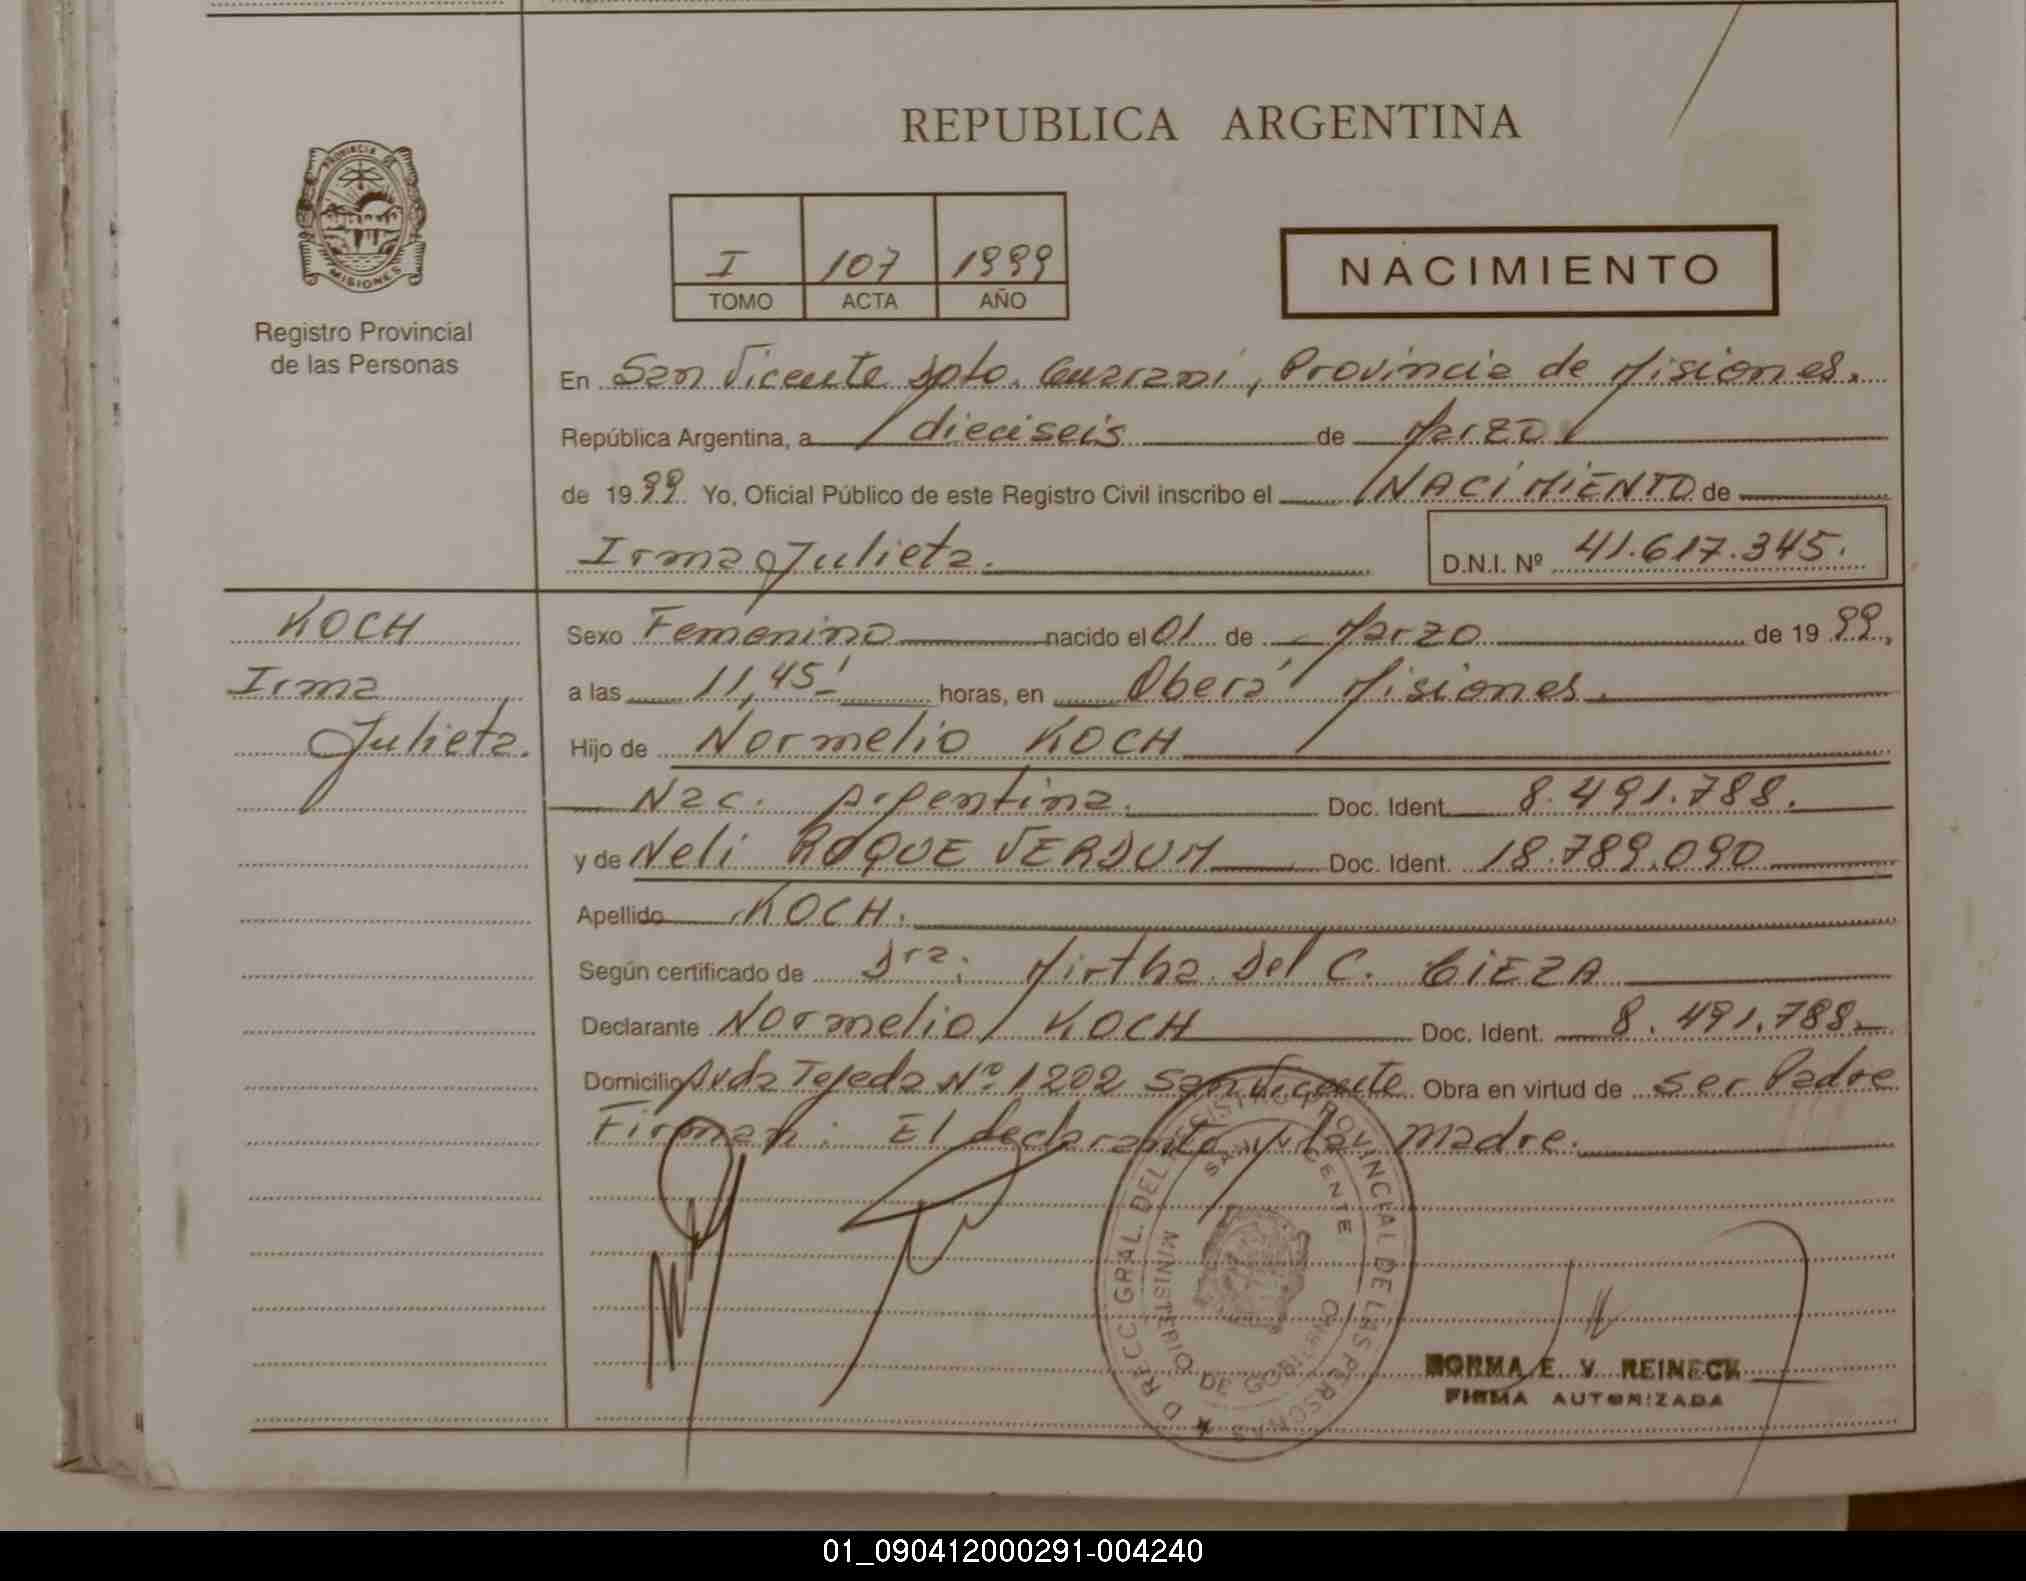 REPUBLICA ARGENTINA
PROVINCIA DE
MISIONES
Registro Provincial
de las Personas
I 107 1999
TOMO ACTA AÑO
NACIMIENTO
En San Vicente Dpto. Guarani, Provincia de Misiones.
República Argentina, a dieciseis de Marzo
de 1999 Yo, Oficial Público de este Registro Civil inscribo el NACIMIENTO de
Irma Julieta. D.N.I. Nº 41.617.345.
KOCH
Irma
Julieta.
Sexo Femenino nacido el 01 de Marzo de 1999,
a las 11,45' horas, en Oberá Misiones.
Hijo de Normelio KOCH
Nac. Argentina. Doc. Ident. 8.491.788.
y de Neli ROQUE VERDUM Doc. Ident. 18.789.090
Apellido KOCH.
Según certificado de Dra: Mirtha del C. CIEZA
Declarante Normelio KOCH Doc. Ident. 8.491.788
Domicilio Avda Tejeda Nº 1202 San Vicente Obra en virtud de ser Padre
Firman: El declarante y la madre.
DIRECC GRAL. DEL REGISTRO PROVINCIAL DE LAS PERSONAS
SAN VICENTE
MINISTERIO DE GOBIERNO
NORMA E. V. REINECK
FIRMA AUTORIZADA
01_090412000291-004240